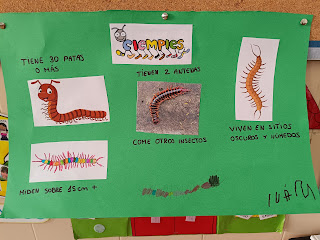 CIEMPIES
TIENE 30 PATAS
O MÁS
TIENEN 2 ANTENAS
COME OTROS INSECTOS
VIVEN EN SITIOS
OSCUROS Y HÚMEDOS
MIDEN SOBRE 15 cm +